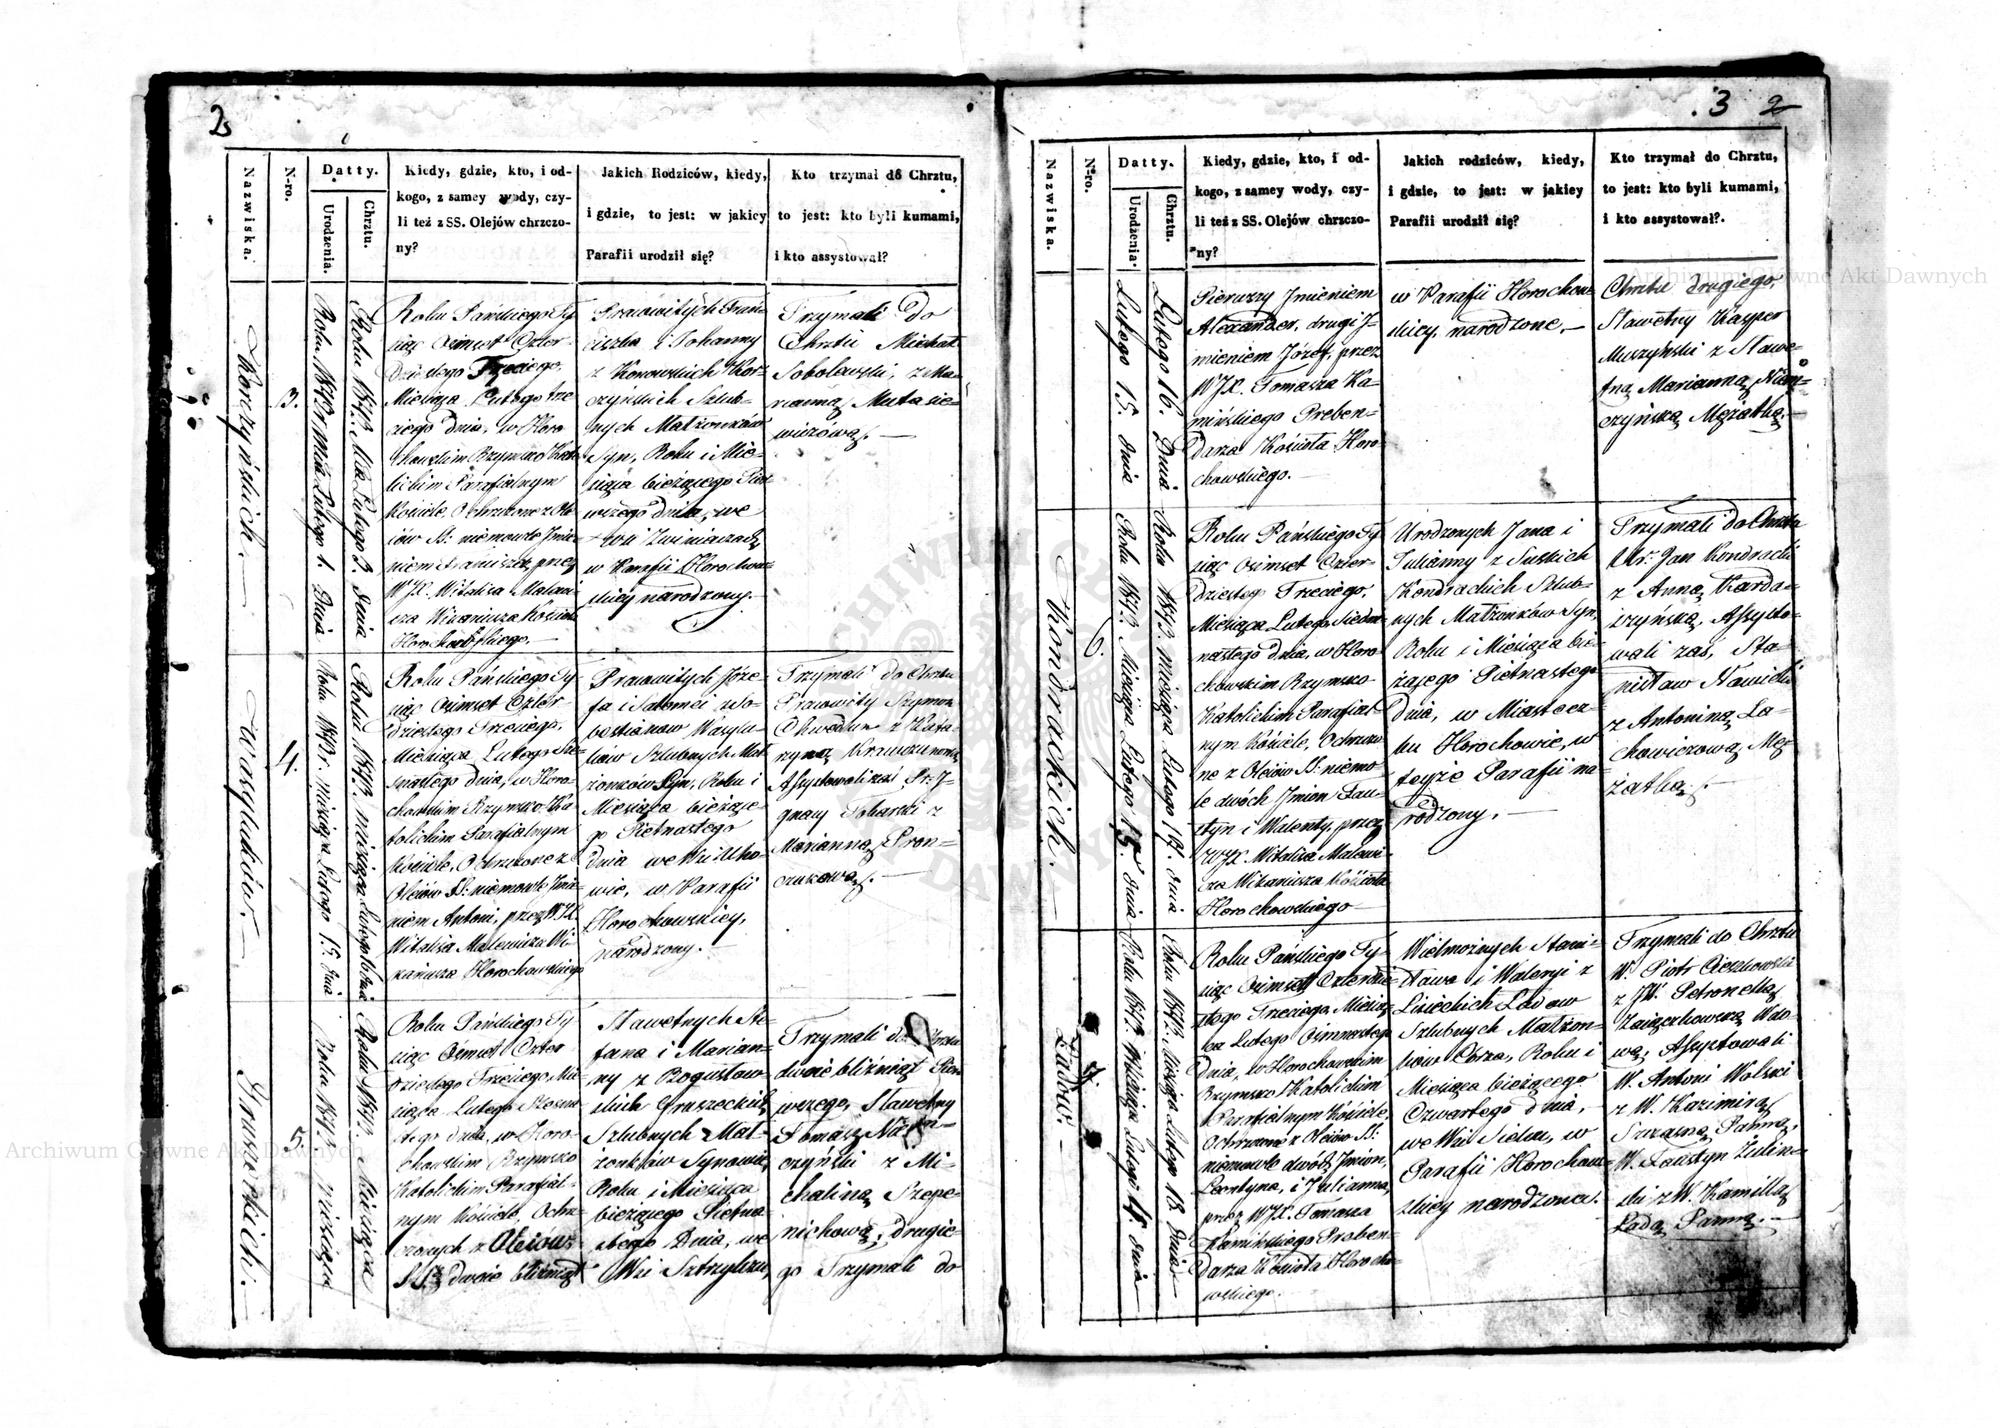 2
Nazwiska.
N-ro.
Datty.
Urodzenia.
Chrztu.
Kiedy, gdzie, kto, i od-
kogo, z samey wody, czy-
li też z SS. Olejów chrzczo-
ny?
Jakich Rodziców, kiedy,
i gdzie, to jest: w jakiey
Parafii urodził się?
Kto trzymał do Chrztu,
to jest: kto byli kumami,
i kto assystował?
Korczyńskich.
3.
Roku 1843 Mca Lutego 1. Dnia
Roku 1843 Mca Lutego 3. dnia
Roku Pańskiego Ty-
siąc Osimset Czter-
dziestego Trzeciego,
Miesiąca Lutego trze-
ciego dnia, w Horo-
chowskim Rzymsko Kato-
lickim Parafialnym
Kościele, Ochrzczone z Ole-
iów SS. niemowle Imie-
niem Franciszek, przez
WJX. Witalisa Malewi-
cza Wikariusza Kościoła
Horochowskiego.
Prawowitych Fran-
ciszka i Johanny
z Konowskich Kor-
czyńskich Szlub-
nych Małżonków
Syn, Roku i Mie-
siąca bieżącego Pier-
wszego dnia, we
wsi Zwiniaczach,
w Parafii Horochow-
skiey narodzony.
Trzymali do
Chrztu Michał
Sobolewski, z Ma-
rianną Mutasie-
wiczówą.
Wasylukow.
4.
Roku 1843 r. Miesiąca Lutego 15. dnia
Roku 1843. Miesiąca Lutego 16 dnia
Roku Pańskiego Ty-
siąc Osimset Czter-
dziestego Trzeciego,
Miesiąca Lutego Sze-
snastego dnia, w Horo-
chowskim Rzymsko-Ka-
tolickim Parafialnym
Kościele, Ochrzczone z
Oleiów SS. niemowle Imie-
niem Antoni, przez WJX.
Witalisa Malewicza Wi-
kariusza Horochowskiego
Prawowitych Józe-
fa i Salomei z So-
bestianow Wasylu-
ków Szlubnych Mał-
żonków Syn, Roku i
Miesiąca bieżące-
go Pietnastego
dnia we Wsi
w Parafii
Horochowskiey,
narodzony.
Trzymali do Chrztu
Prawowity Szymon
z Kata-
rzyną
Assystowali zaś Pr. J-
gnacy z
Marianną Pron-
czukową.
Gruszeckich.
5.
Roku 1843. Miesiąca
Roku 1843. Miesiąca
Roku Pańskiego Ty-
siąc Ośmset Czter-
dziestego Trzeciego, Mie-
siąca Lutego Szesna-
stego dnia, w Horo-
chowskim Rzymsko
Katolickim Parafial-
nym Kościele, Ochrz-
czonych z Oleiow
SS. dwoie bliźniąt
Sławetnych Ste-
fana i Marian-
ny z Bogusław-
skich Gruszeckich
Szlubnych Mał-
żonków Synowie,
Roku i Miesiąca
bieżącego Pietna-
stego Dnia, we
Wsi Strzylcu,
Trzymali do Chrztu
dwoie bliźniąt Pier-
wszego, Sławetny
Tomasz
z Mi-
chaliną Szepe-
nichową, drugie-
go Trzymali do
3 2
Nazwiska.
N-ro.
Datty.
Urodzenia.
Chrztu.
Kiedy, gdzie, kto, i od-
kogo, z samey wody, czy-
li też z SS. Olejów chrzczo-
ny?
Jakich rodziców, kiedy,
i gdzie, to jest: w jakiey
Parafii urodził się?
Kto trzymał do Chrztu,
to jest: kto byli kumami,
i kto assystował?
Lutego 15. dnia
Lutego 16. Dnia
Pierwszy Imieniem
Alexander, drugi J-
mieniem Józef, przez
WJX. Tomasza Ka-
mińskiego Preben-
darza Kościoła Horo-
chowskiego.
w Parafii Horochow-
skiey, narodzone.
Chrztu drugiego,
Sławetny Kasper
Muszyński z Sławe-
tną Marianną Niem-
czyńską Mężatką.
Kondrackich.
6.
Roku 1843. Miesiąca Lutego 15. dnia
Roku 1843. Miesiąca Lutego 17. dnia
Roku Pańskiego Ty-
siąc Osimset Czter-
dziestego Trzeciego,
Miesiąca Lutego Siedm-
nastego dnia, w Horo-
chowskim Rzymsko
Katolickim Parafial-
nym Kościele, Ochrzczo-
ne z Oleiów SS. niemo-
le dwóch Imion Fau-
styn i Walenty, przez
WJX. Witalisa Malewi-
cza Wikariusza Kościoła
Horochowskiego
Urodzonych Jana i
Julianny z Suskich
Kondrackich Szlub-
nych Małżonków Syn,
Roku i Miesiąca bie-
żącego Pietnastego
Dnia, w Miastecz-
ku Horochowie, w
teyże Parafii na-
rodzony.
Trzymali do Chrztu
Ur. Jan Kondracki
z Anną Karda-
szyńską, Assysto-
wali zaś, Sta-
nisław Nawicki
z Antoniną La-
chowiczową Mę-
żatką.
Ładow.
7.
Roku 1843. Miesiąca Lutego 4. dnia
Roku 1843. Miesiąca Lutego 18. dnia
Roku Pańskiego Ty-
siąc Osimset Czterdzie-
stego Trzeciego, Miesią-
ca Lutego Osimnastego
Dnia, w Horochowskim
Rzymsko Katolickim
Parafialnym Kościele,
Ochrzczone z Oleiów SS.
niemowle dwóch Imion,
Leontyna, i Julianna,
przez WJX. Tomasza
Kamińskiego Preben-
darza Kościoła Horocho-
wskiego.
Wielmożnych Stani-
sława i Waleryi z
Lisieckich Ładow
Szlubnych Małżon-
ków Córa, Roku i
Miesiąca bieżącego
Czwartego dnia,
we Wsi Sielcu, w
Parafii Horochow-
skiey narodzona.
Trzymali do Chrztu
W. Piotr Cieszkowski
z JW. Petronellą
Zaiączkowską Wdo-
wą, Assystowali
W. Antoni Wolski
z W. Kazimirą
Panną,
W. Faustyn Zulin-
ski z W. Kamillą
Ładą Panną.
Archiwum Główne Akt Dawnych
Archiwum Główne Akt Dawnych